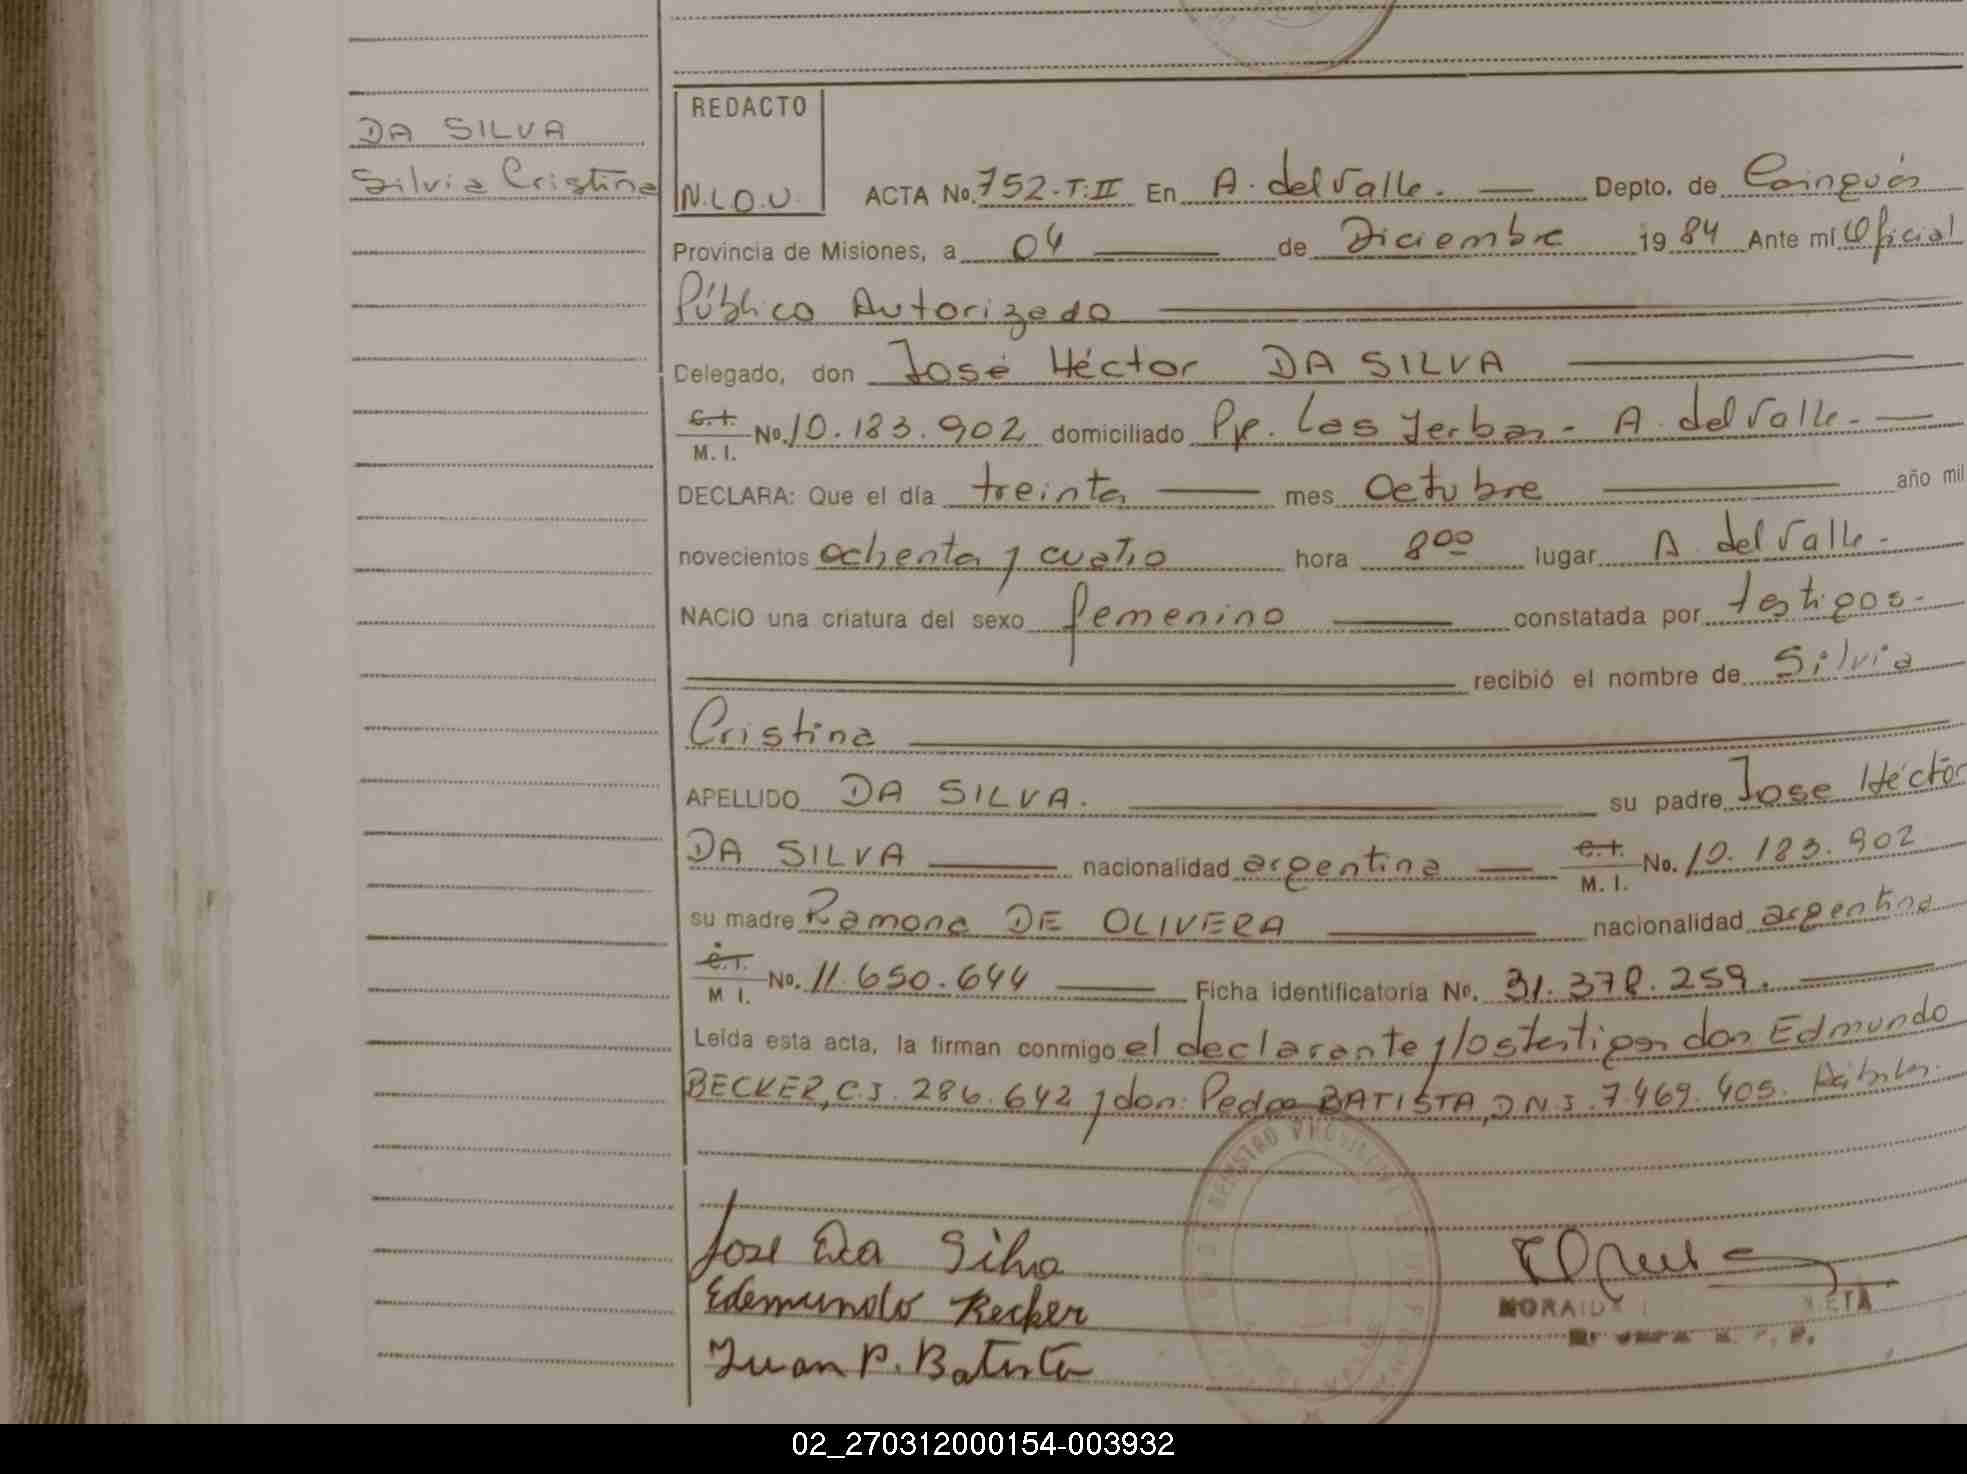 DA SILVA
Silvia Cristina
REDACTO
N.L.O.U.
ACTA No. 752-T:II En A. del Valle. Depto. de Cainguás
Provincia de Misiones, a 04 de Diciembre 19 84 Ante mí Oficial
Público Autorizado
Delegado, don José Héctor DA SILVA
C.I. M. I. No. 10.183.902 domiciliado Pje. Las Yerbas - A. del Valle.
DECLARA: Que el día treinta mes Octubre año mil
novecientos ochenta y cuatro hora 8 00 lugar A. del Valle.
NACIO una criatura del sexo femenino constatada por testigos.
recibió el nombre de Silvia
Cristina
APELLIDO DA SILVA. su padre Jose Héctor
DA SILVA nacionalidad argentina C.I. M. I. No. 10.183.902
su madre Ramona DE OLIVERA nacionalidad argentina
C.I. M I. No. 11.650.644 Ficha identificatoria No. 31.378.259.
Leída esta acta, la firman conmigo el declarante y los testigos don Edmundo
BECKER, C.I. 286.642 y don: Pedro BATISTA, D.N.I. 7.469.405. Hábiles.
Jose Da Silva
Edemundo Becker
Juan P. Batista
REGISTRO PROVINCIAL
02_270312000154-003932